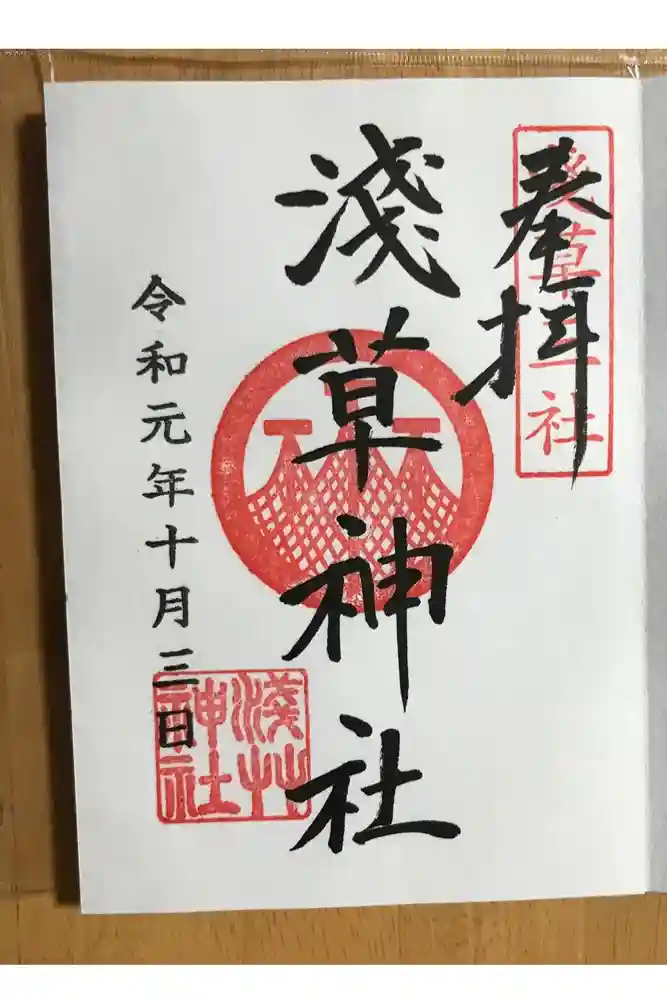 奉拝
浅草三社
淺草神社
令和元年十月三日
淺艸
神社